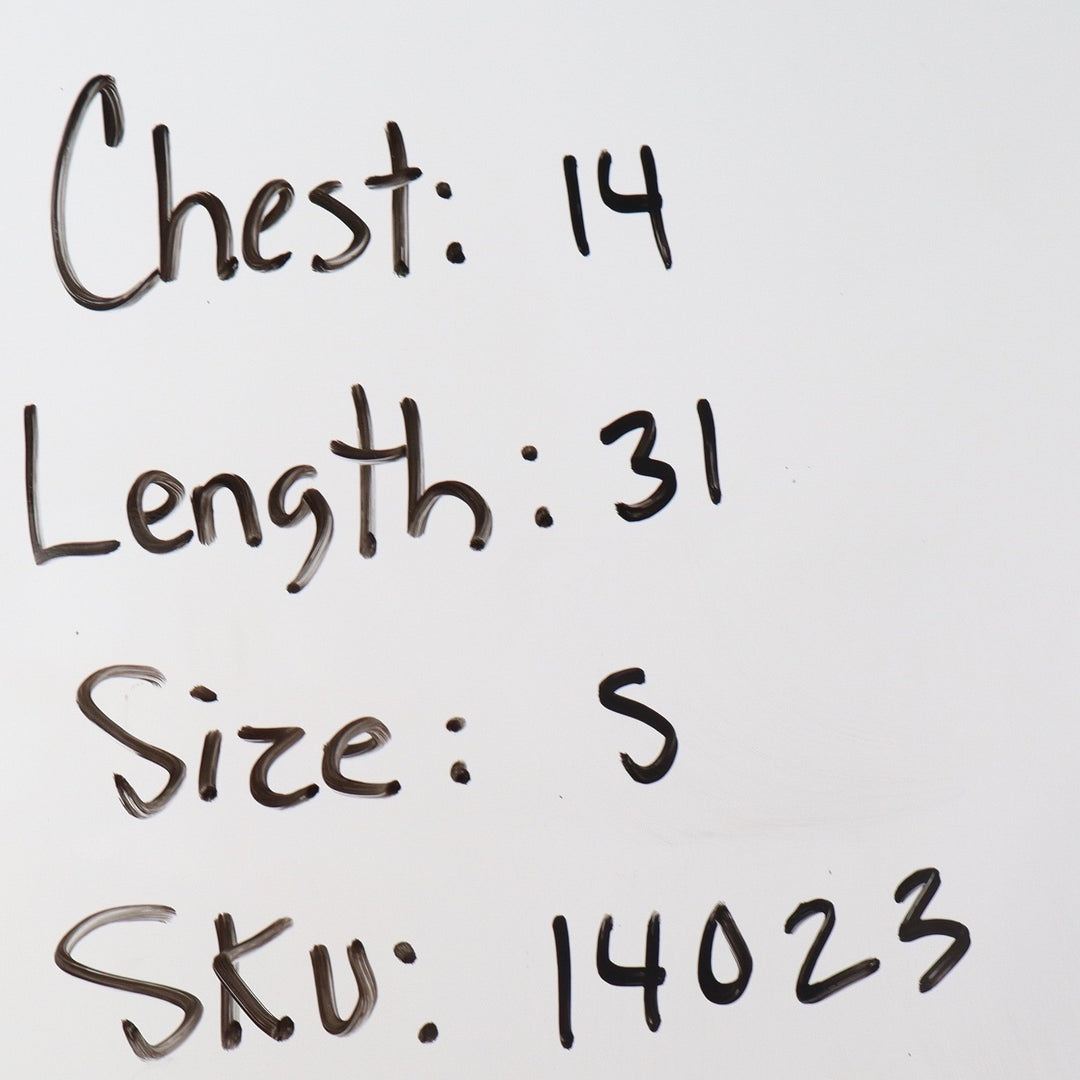 Chest: 14
Length: 31
Size: S
SKU: 14023